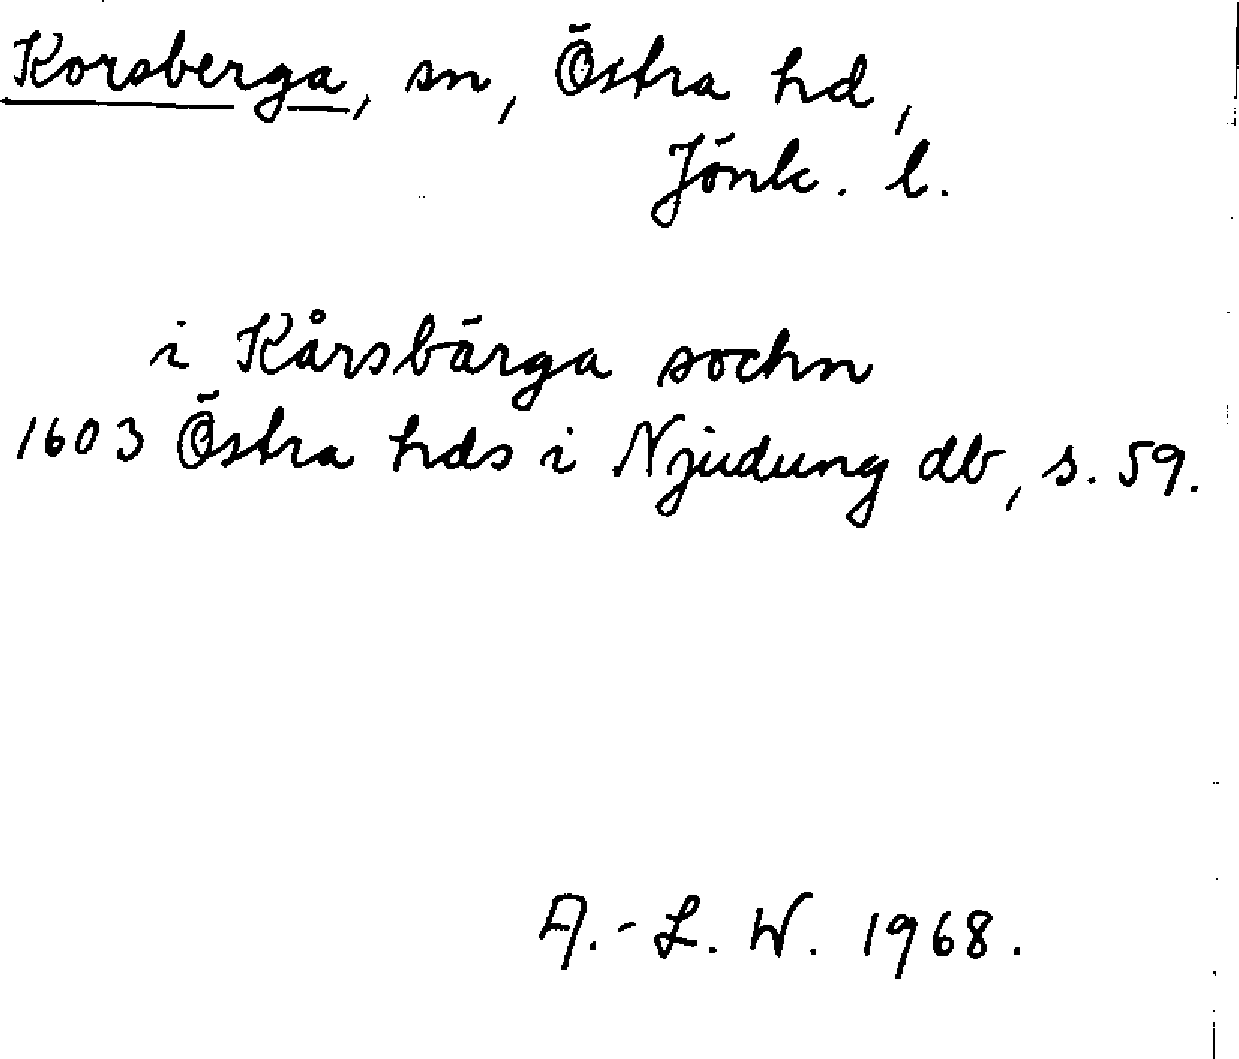 Korsberga, sn, Östra hd,
Jönk. l.
i Kårsbärga sochn
1603 Östra hds i Njudung db, s. 59.
A.-L. W. 1968.